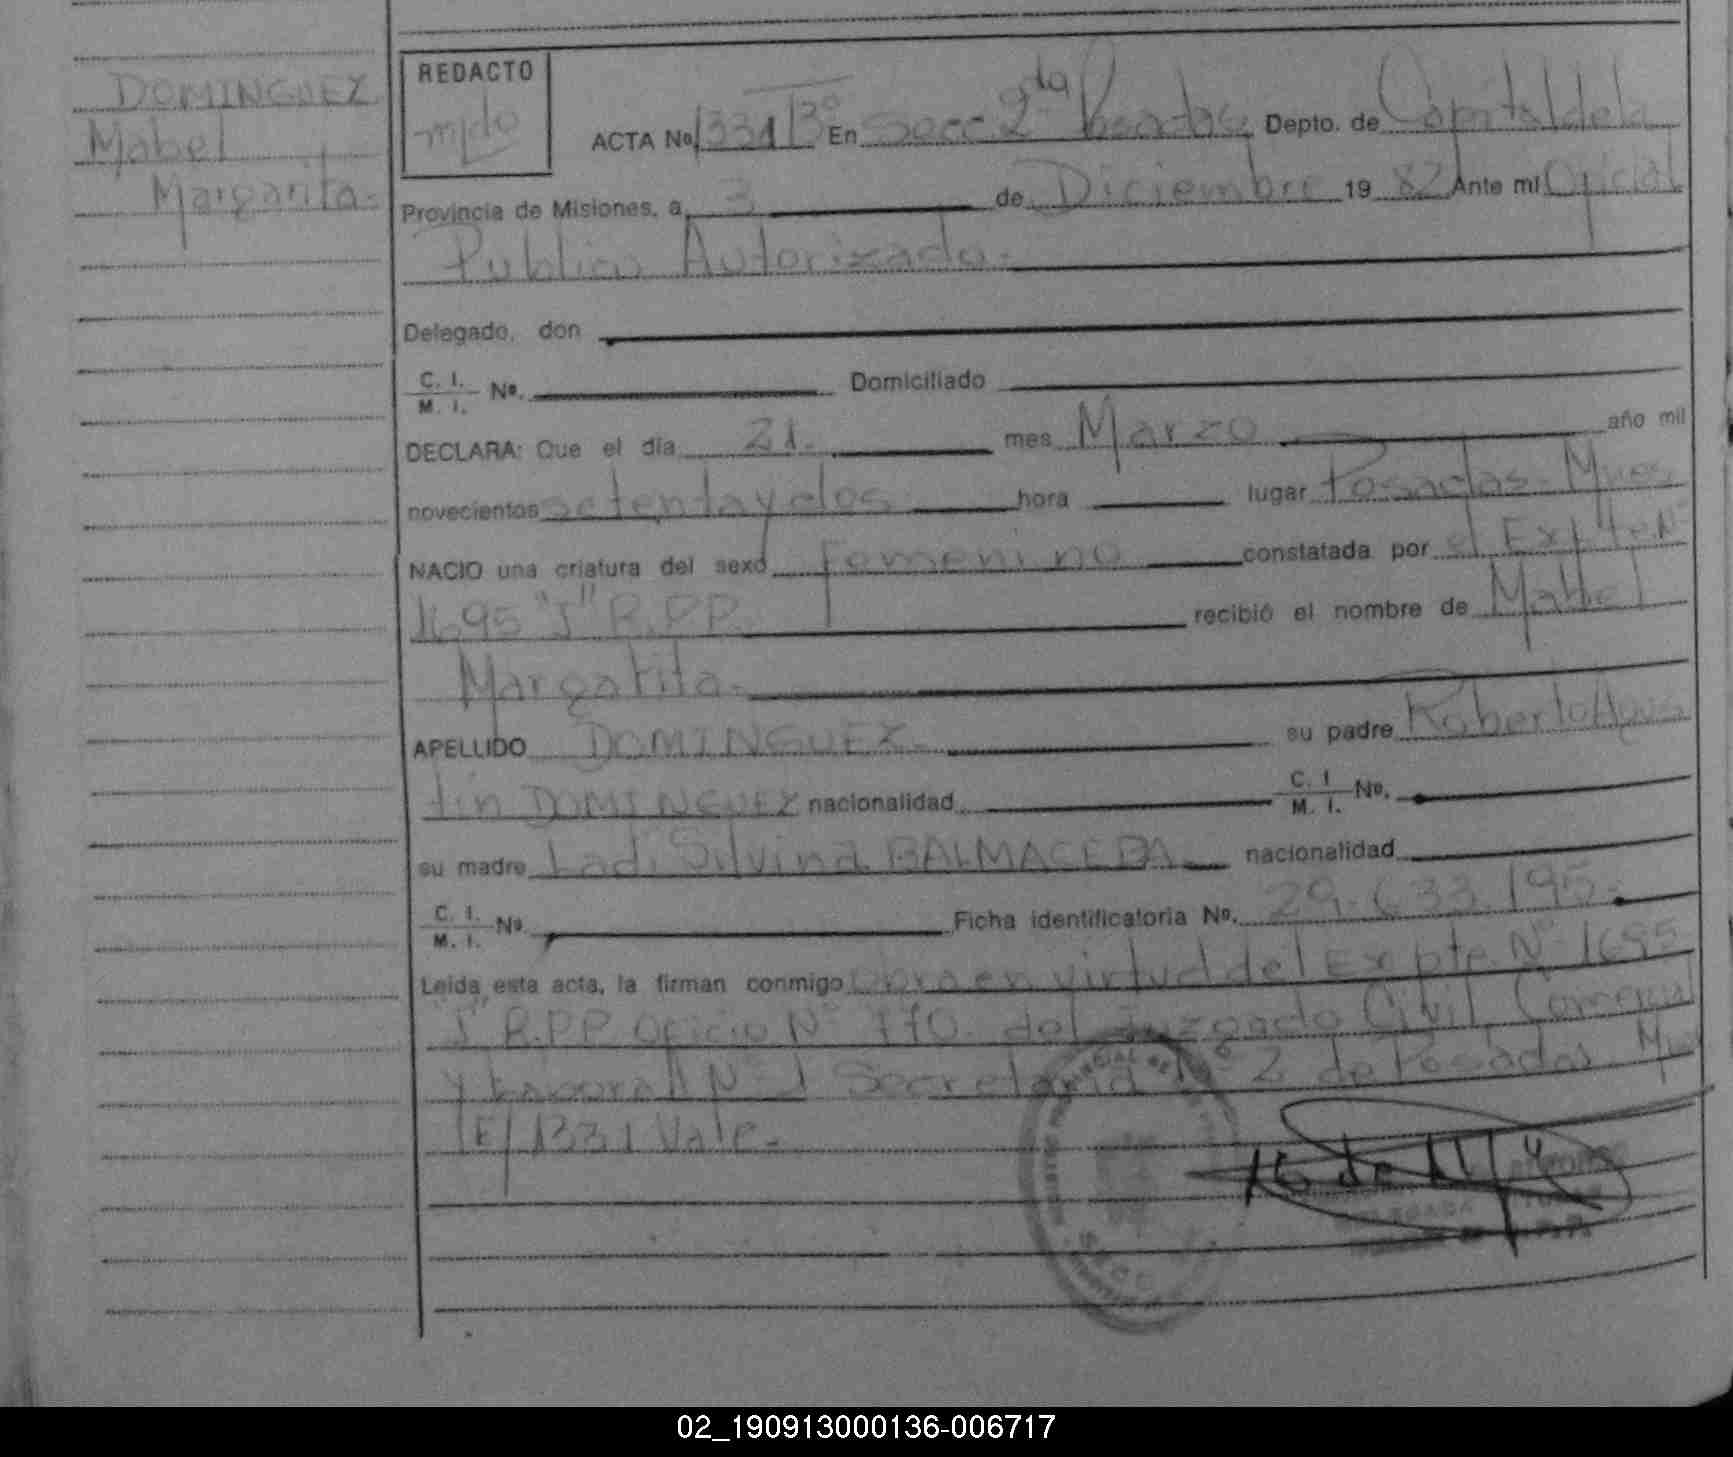 DOMINGUEZ
Mabel
Margarita.-
REDACTO
mpdo
ACTA Nº 1331 Bº En Secc 2da Posadas Depto. de Capital de la
Provincia de Misiones, a 3 de Diciembre 19 82 Ante mí Oficial
Publico Autorizado.-
Delegado, don
C. I. / M. I. Nº. Domiciliado
DECLARA: Que el día 21. mes Marzo año mil
novecientos setenta y dos hora lugar Posadas-Mnes
NACIO una criatura del sexo femenino constatada por el Expte Nº
1695 "J" R.P.P. recibió el nombre de Mabel
Margarita.-
APELLIDO DOMINGUEZ.- su padre Roberto Agus
tin DOMINGUEZ nacionalidad C. I / M. I. Nº.
su madre Ladi Silvina BALMACEDA nacionalidad
C. I. / M. I. Nº Ficha identificatoria Nº. 29.633.195.-
Leída esta acta, la firman conmigo Obra en virtud del Expte. Nº 1695
"J" R.P.P. Oficio Nº 770. del Juzgado Civil, Comercial
y Laboral Nº 1 Secretaria Nº 2 de Posadas Mnes
E/ 1331 Vale.-
DELEGADA
02_190913000136-006717